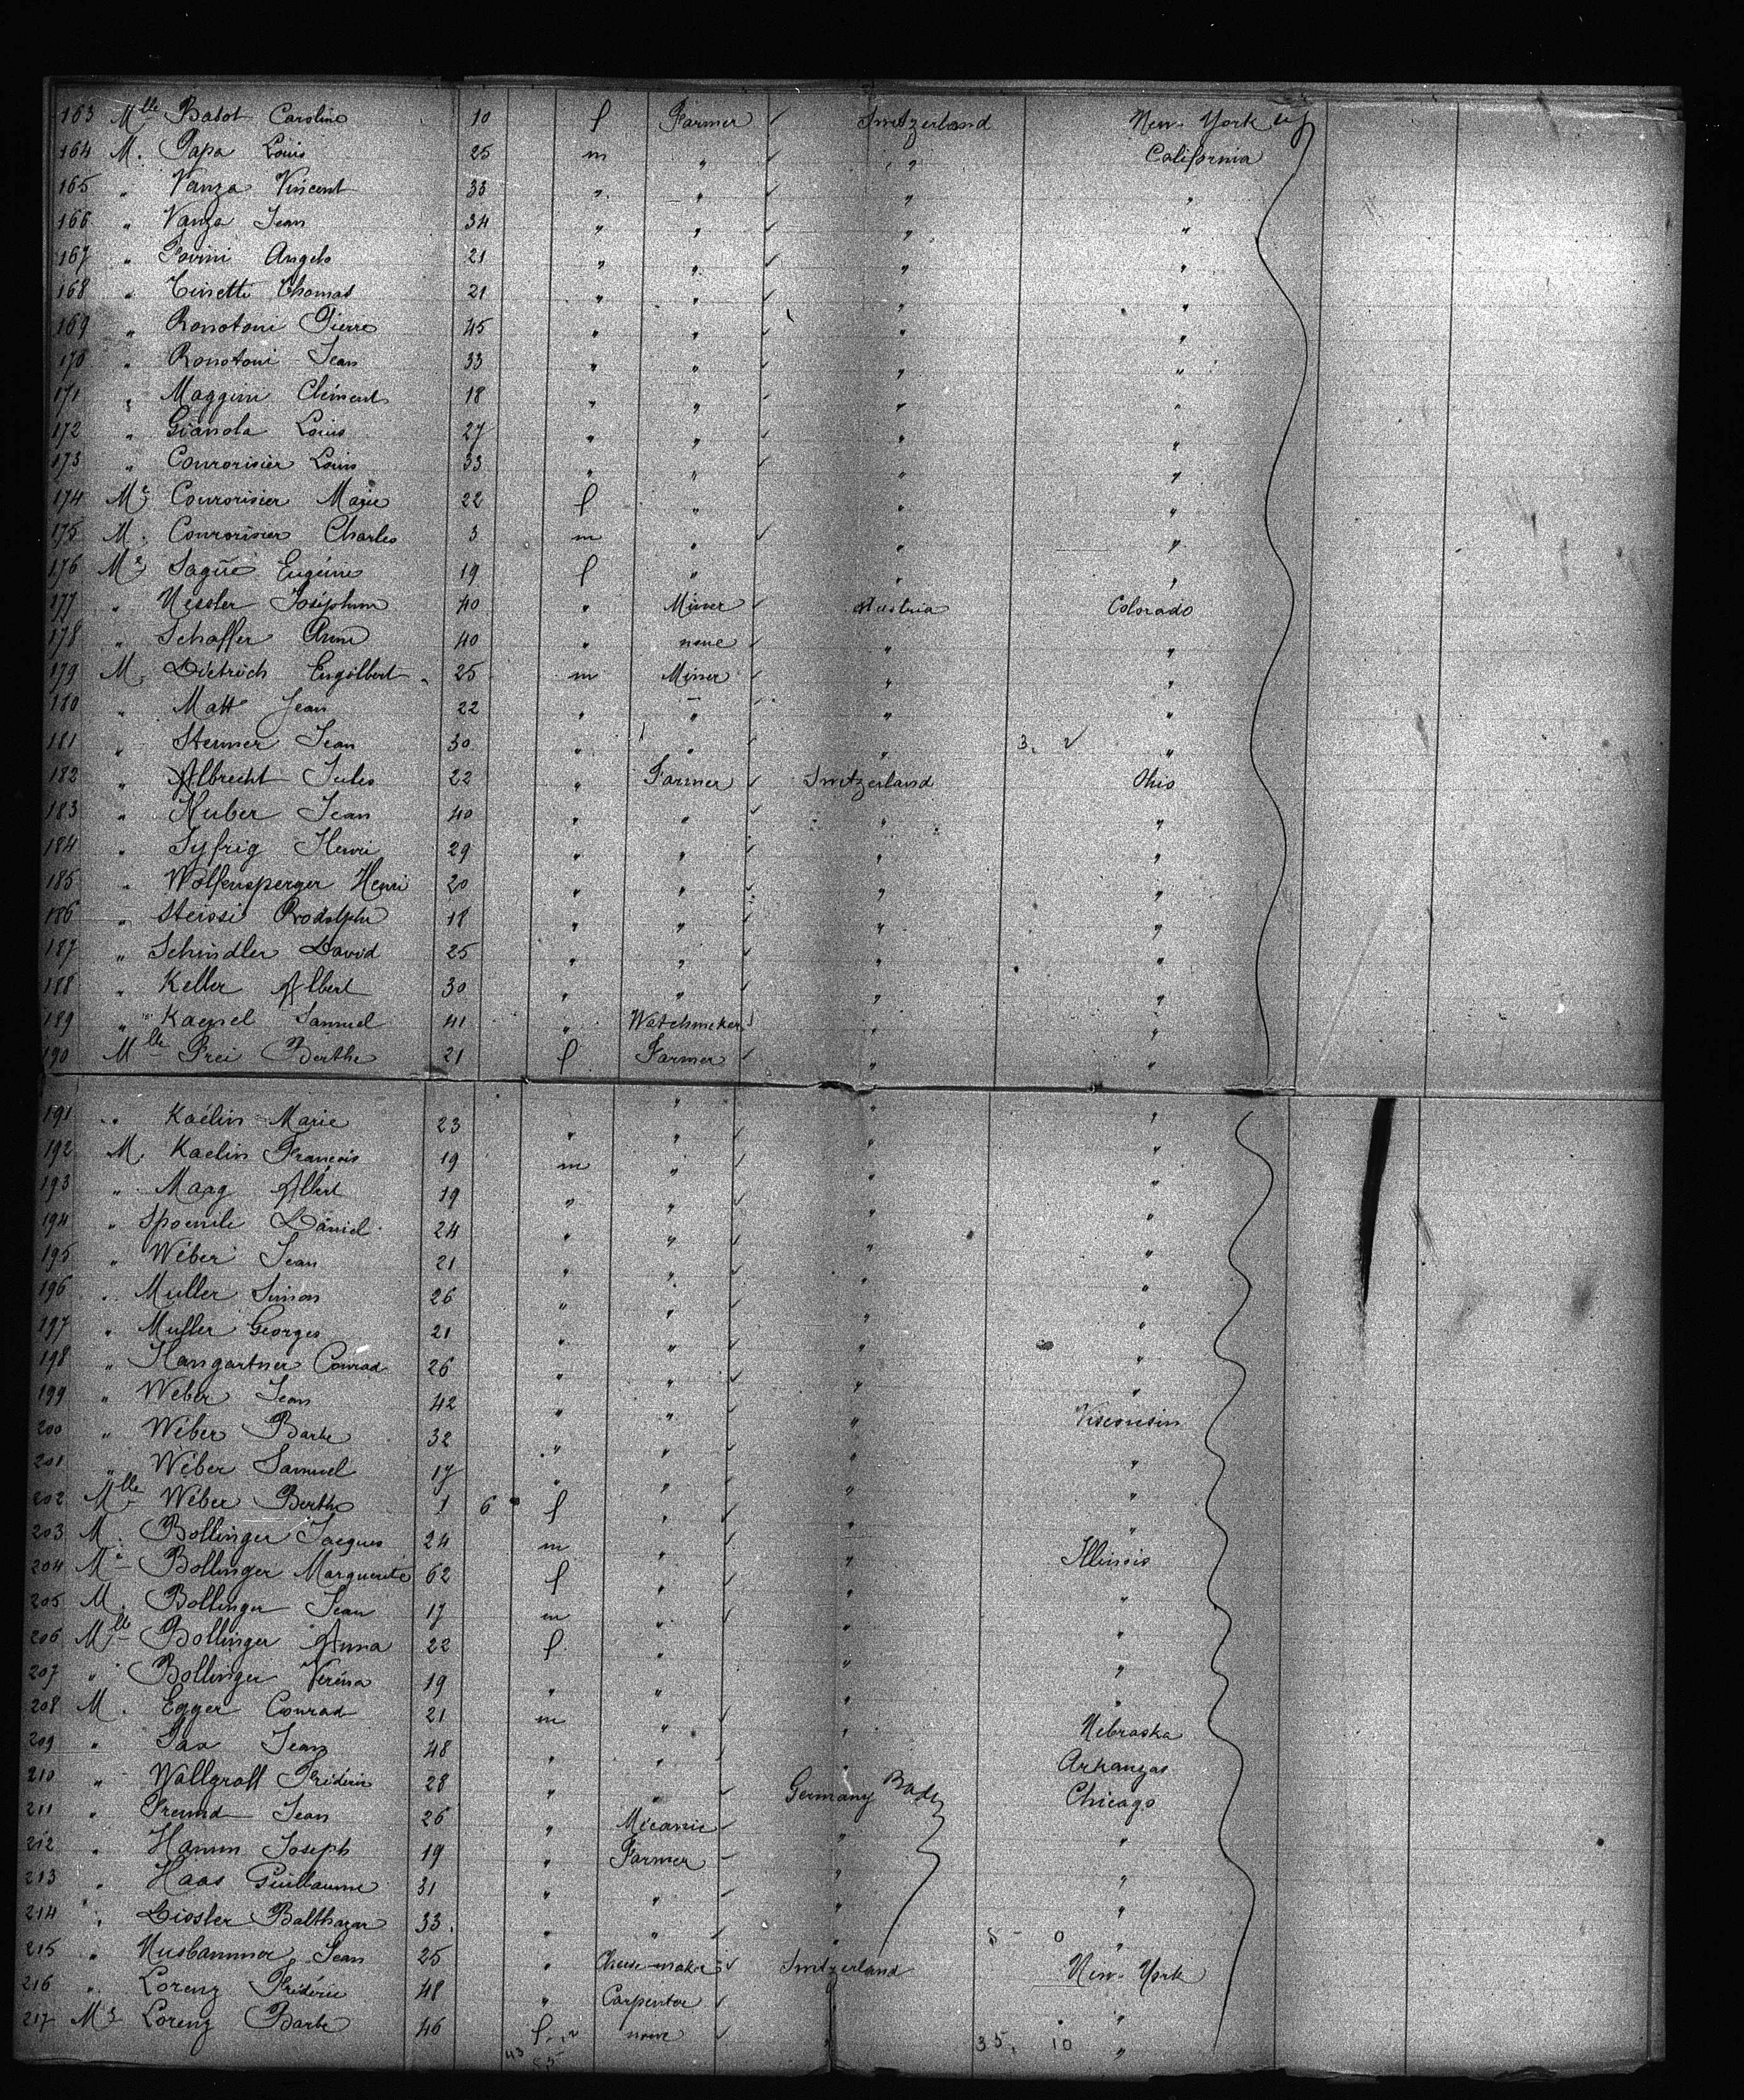 163 Mlle Babot Caroline 10 f Farmer ✓ Switzerland New-York
164 M. Papa Louis 25 m " ✓ " California
165 " Vanza Vincent 33 " " ✓ " "
166 " Vanza Jean 34 " " ✓ " "
167 " Fovini Angelo 21 " " ✓ " "
168 " Cinetti Thomas 21 " " ✓ " "
169 " Ronotoni Pierre 45 " " ✓ " "
170 " Ronotoni Jean 33 " " ✓ " "
171 " Maggini Clément 18 " " ✓ " "
172 " Gianola Louis 27 " " ✓ " "
173 " Courvoisier Louis 33 " " ✓ " "
174 Me Courvoisier Marie 22 f " " "
175 M. Courvoisier Charles 3 m " ✓ " "
176 Me Eugénie 19 f " " "
177 " Nessler Joséphine 40 " Miner ✓ Austria Colorado
178 " Schaffer Anne 40 " none ✓ " "
179 M. Dietrich Engilbert 25 m Miner ✓ " "
180 " Matt Jean 22 " " " "
181 " Sterner Jean 30 " " ✓ " 3. ✓ "
182 " Albrecht Jules 22 " Farmer ✓ Switzerland Ohio
183 " Huber Jean 40 " " ✓ " "
184 " Syfrig Henri 29 " " ✓ " "
185 " Wolfensperger Henri 20 " " ✓ " "
186 " Steissi Rodolphe 18 " " ✓ " "
187 " Schindler David 25 " " ✓ " "
188 " Keller Albert 30 " " ✓ " "
189 " Samuel 41 " Watchmeker ✓ " "
190 Mlle Frei Berthe 21 f Farmer ✓ " "
191 " Kaélin Marie 23 " " ✓ " "
192 M. Kaelin François 19 m " ✓ " "
193 " Maag Albert 19 " " ✓ " "
194 " Daniel 24 " " ✓ " "
195 " Wéber Jean 21 " " ✓ " "
196 " Muller Simon 26 " " ✓ " "
197 " Muller Georges 21 " " ✓ " "
198 " Hangartner Conrad 26 " " ✓ " "
199 " Weber Jean 42 " " ✓ " Visconsin
200 " Wéber Barbe 32 " " ✓ " "
201 " Wéber Samuel 17 " " ✓ " "
202 Mlle Wéber Berthe 1 6 f " ✓ " "
203 M. Bollinger Jacques 24 m " ✓ " Illinois
204 Me Bollinger Marguerite 62 f " ✓ " "
205 M. Bollinger Jean 17 m " ✓ " "
206 Mlle Bollinger Anna 22 f " " "
207 " Bollinger Veréna 19 " " " "
208 M. Egger Conrad 21 m " ✓ " Nebraska
209 " Sax Jean 48 " " ✓ " Arkanzas
210 " Wallgraff Frédéric 28 " " ✓ Germany Bade Chicago
211 " Freund Jean 26 " Mécanic ✓ " "
212 " Hamm Joseph 19 " Farmer ✓ " "
213 " Haas Guillaume 31 " " ✓ " "
214 " Balthazar 33 " " ✓ " 8 - 0 "
215 " Jean 25 " Cheese-maker ✓ Switzerland New-York
216 " Lorenz Frédéric 48 " Carpenter ✓ " "
217 Me Lorenz Barbe 46 f none ✓ " 35. 10 "
43